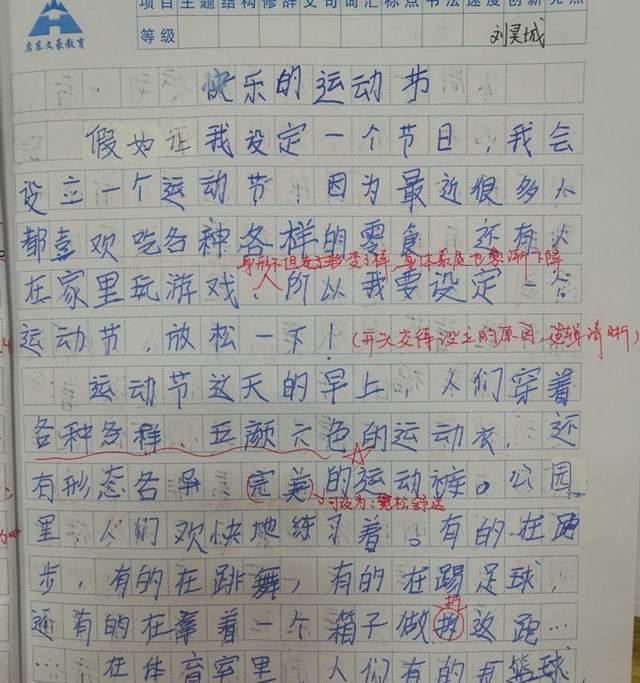 项目主题结构修辞文句词汇标点书法速度创新亮点
启东文豪教育
等级
刘昊城
快乐的运动节
假如让我设定一个节日，我会
设立一个运动节，因为最近很多人
都喜欢吃各种各样的零食，还有人
身形不但变了样，身体素质也逐渐下降
在家里玩游戏，人所以我要设定一个
运动节，放松一下！（开头交待设立的原因，逻辑清晰）
运动节这天的早上，人们穿着
各种各样、五颜六色的运动衣，还
有形态各异、完美的运动裤。公园
可改为：宽松舒适
里，人们欢快地练习着。有的在跑
步，有的在跳舞，有的在踢足球，
还有的在拿着一个箱子做折返跑…
折
…在体育室里，人们有的打篮球，